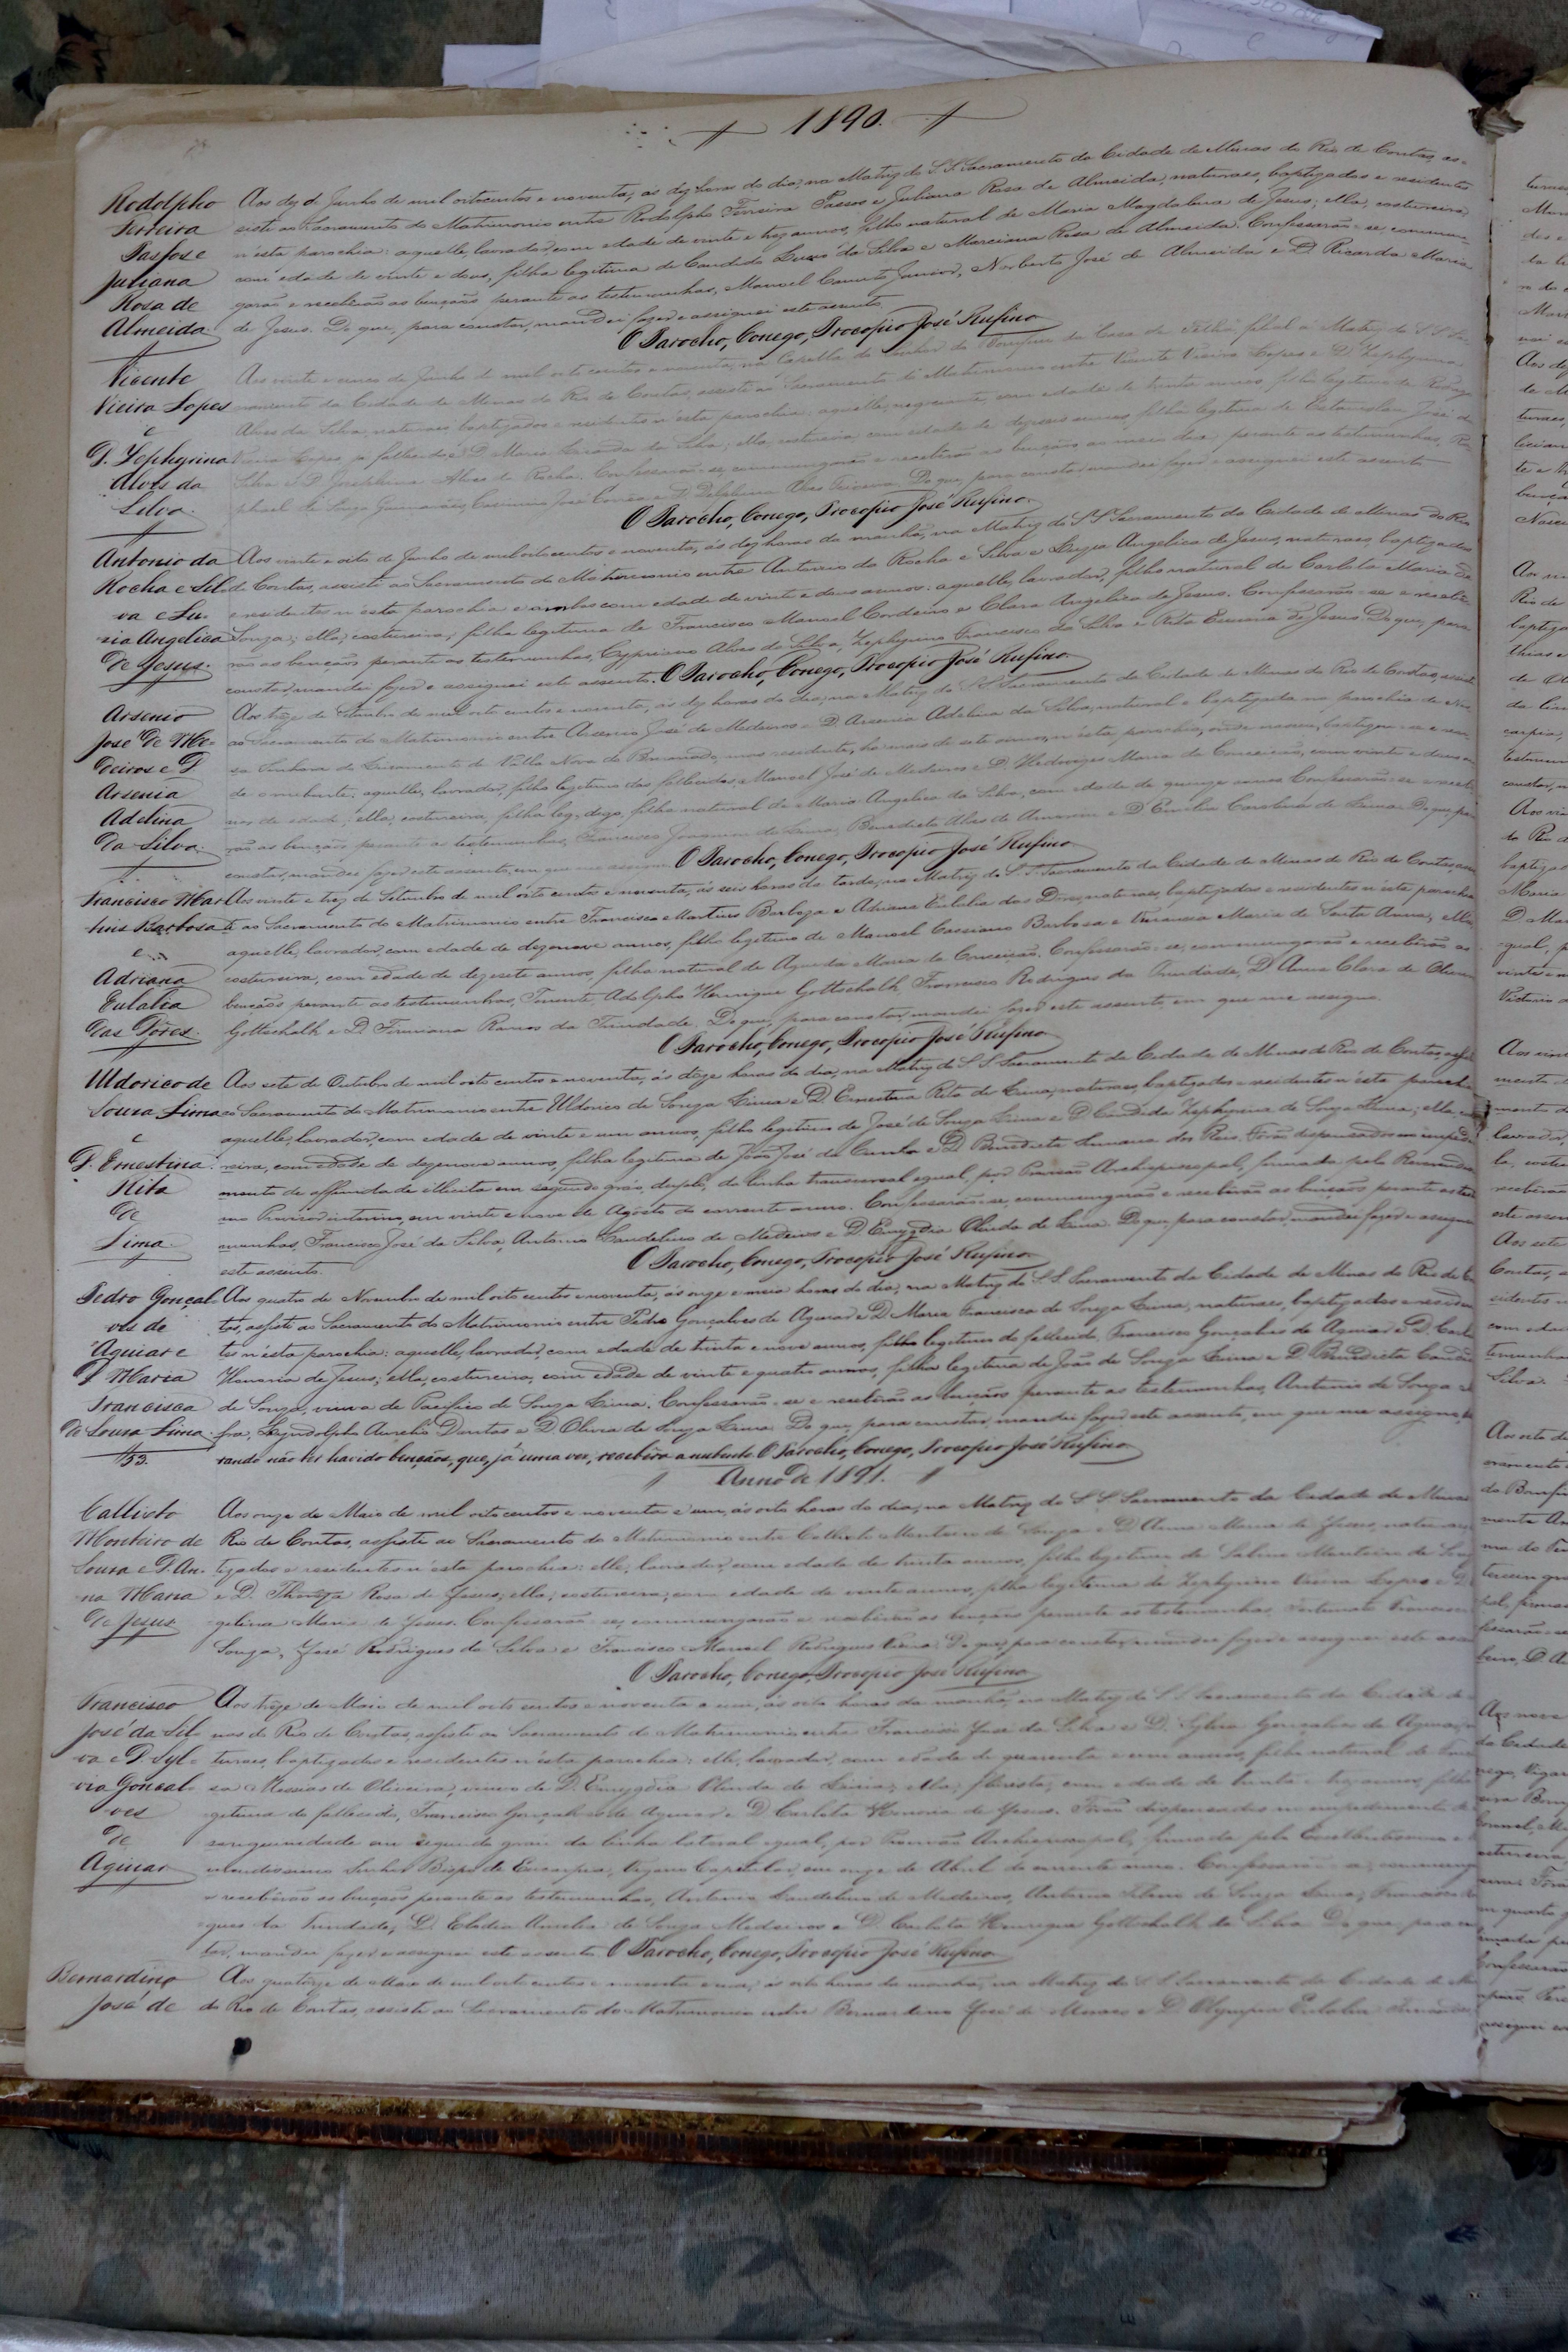 1890.
Rodolpho
Ferreira
Passos e
Juliana
Rosa de
Almeida
Aos dez de Junho de mil oitocentos e noventa, ás dez horas do dia, na Matriz do S. S. Sacramento da Cidade de Minas do Rio de Contas, as-
sisti ao Sacramento do Matrimonio entre Rodolpho Ferreira Passos e Juliana Rosa de Almeida, naturaes, baptizados e residentes
n'esta parochia: aquelle, lavrador, com edade de vinte e trez annos, filho natural de Maria Magdalena de Jesus; ella, costureira,
com edade de vinte e dous, filha legitima de Candido da Silva e Marciana Rosa de Almeida. Confessarão-se, commun-
garão e receberão as bençãos perante as testemunhas, Manoel Canuto Junior, Norberto José de Almeida e D. Ricarda Maria
de Jesus. Do que, para constar, mandei fazer e assignei este assento.
O Parocho, Conego, Procopio José Rufino
Vicente
Vieira Lopes
e
D. Zephyrina
Alves da
Silva.
Aos vinte e cinco de Junho de mil oito centos e noventa, na Capella do Senhor do Bomfim da Casa de Telha, filial a Matriz do S. S. Sa-
cramento da Cidade de Minas do Rio de Contas, assisti ao Sacramento do Matrimonio entre Vicente Vieira Lopes e D. Zephyrina
Alves da Silva, naturaes, baptizados e residentes n'esta parochia: aquelle, negociante, com edade de trinta annos, filho legitimo de
Vieira Lopes, ja fallecido, e D. Maria da Silva; ella, costureira, com edade de dezeseis annos, filha legitima de Estanislau José da
Silva e D. Josephina Alves da Rocha. Confessarão-se, commungarão e receberão as bençãos ao meio dia, perante as testemunhas, Ra-
phael de Souza Guimarães, Casimiro José Corrêa e D. Delphina Alves Teixeira. Do que, para constar, mandei fazer e assignei este assento
O Parocho, Conego, Procopio José Rufino.
Antonio da
Rocha e Sil-
va e Lu-
zia Angelica
de Jesus.
Aos vinte e oito de Junho de mil oitocentos e noventa, ás dez horas da manhã, na Matriz do S. S. Sacramento da Cidade de Minas do Rio
de Contas, assisti ao Sacramento do Matrimonio entre Antonio da Rocha e Silva e Luzia Angelica de Jesus, naturaes, baptizados
e residentes n'esta parochia e ambos com edade de vinte e dous annos: aquelle, lavrador, filho natural de Carlota Maria de
Souza; ella, costureira, filha legitima de Francisco Manoel Cordeiro e Clara Angelica de Jesus. Confessarão-se e recebe-
rão as bençãos perante as testemunhas, Cypriano Alves da Silva, Zephyrino Francisco da Silva e Rita de Jesus. Do que, para
constar, mandei fazer e assignei este assento. O Parocho, Conego, Procopio José Rufino.
Arsenio
José de Me-
deiros e D.
Arsenia
Adelina
da Silva.
Aos treze de Setembro de mil oito centos e noventa, ás dez horas do dia, na Matriz do S. S. Sacramento da Cidade de Minas do Rio de Contas, assisti
ao Sacramento do Matrimonio entre Arsenio José de Medeiros e D. Arsenia Adelina da Silva, natural e baptizada na parochia de Nos-
sa Senhora do Livramento de Villa Nova do Brumado, mas residente, ha mais de sete annos, n'esta parochia, onde nasceu, baptizou-se e resi-
de o nubente; aquelle, lavrador, filho legitimo dos fallecidos, Manoel José de Medeiros e D. Hedwiges Maria da Conceição, com vinte e dous an-
nos de edade; ella, costureira, filha leg, digo, filha natural de Maria Angelica da Silva, com edade de quinze annos. Confessarão-se e recebe-
rão as bençãos perante as testemunhas, Francisco Joaquim de Lima, Benedicto Alves de Amorim e D. Emilia Carolina de Lima. Do que, para
constar, mandei fazer este assento, em que me assigno. O Parocho, Conego, Procopio José Rufino
Francisco Mar-
tins Barbosa
e
Adriana
Eulalia
das Dores.
Aos vinte e trez de Setembro de mil oito centos e noventa, ás seis horas da tarde, na Matriz do S. S. Sacramento da Cidade de Minas do Rio de Contas, assis-
ti ao Sacramento do Matrimonio entre Francisco Martins Barboza e Adriana Eulalia das Dores, naturaes, baptizados e residentes n'esta parochia:
aquelle, lavrador, com edade de dezenove annos, filho legitimo de Manoel Cassiano Barbosa e Veronica Maria de Santa Anna; ella,
costureira, com edade de dezesete annos, filha natural de Agueda Maria da Conceição. Confessarão-se, commungarão e receberão as
bençãos perante as testemunhas, Tenente, Adolpho Henrique Gottschalk, Francisco Rodrigues da Trindade, D. Anna Clara de Oliveira
Gottschalk e D. Firmiana Ramos da Trindade. Do que, para constar, mandei fazer este assento, em que me assigno.
O Parocho, Conego, Procopio José Rufino
Uldorico de
Sousa Lima
e
D. Ernestina
Rita
de
Lima.
Aos sete de Outubro de mil oito centos e noventa, ás doze horas do dia, na Matriz do S. S. Sacramento da Cidade de Minas do Rio de Contas, assisti
ao Sacramento do Matrimonio entre Uldorico de Souza Lima e D. Ernestina Rita de Lima, naturaes, baptizados e residentes n'esta parochia:
aquelle, lavrador, com edade de vinte e um annos, filho legitimo de José de Souza Lima e D. Candida Zephyrina de Souza Lima; ella, costu-
reira, com edade de dezenove annos, filha legitima de João José da Cunha e D. Benedicta Simoura dos Reis. Forão dispensados no impedi-
mento de affinidade illicita em segundo gráo, duplo, da linha transversal egual, por Provisão Archiepiscopal, firmada pelo Reverendissi-
mo Provisor interino, em vinte e nove de Agosto do corrente anno. Confessarão-se, commungarão e receberão as bençãos perante as teste-
munhas, Francisco José da Silva, Antonio Landelino de Medeiros e D. Emygdia Olinda de Lima. Do que, para constar, mandei fazer e assignei
este assento. O Parocho, Conego, Procopio José Rufino.
Pedro Gonçal-
ves de
Aguiar e
D. Maria
Francisca
de Sousa Lima.
53.
Aos quatro de Novembro de mil oito centos e noventa, ás onze e meia horas do dia, na Matriz do S. S. Sacramento da Cidade de Minas do Rio de Con-
tas, assisti ao Sacramento do Matrimonio entre Pedro Gonçalves de Aguiar e D. Maria Francisca de Souza Lima, naturaes, baptizados e residen-
tes n'esta parochia: aquelle, lavrador, com edade de trinta e nove annos, filho legitimo do fallecido, Francisco Gonçalves de Aguiar e D. Carlota
Honoria de Jesus; ella, costureira, com edade de vinte e quatro annos, filha legitima de João de Souza Lima e D. Benedicta Candida
de Souza, viuva de Pacifico de Souza Lima. Confessarão-se e receberão as bençãos perante as testemunhas, Antonio de Souza
Aurelio Dantas e D. Olivia de Souza Lima. Do que, para constar, mandei fazer este assento, em que me assigno,
rando não ter havido bençãos, que, já uma vez, recebêra a nubente. O Parocho, Conego, Procopio José Rufino
Anno de 1891.
Callisto
Monteiro de
Sousa e D. An-
na Maria
de Jesus
Aos onze de Maio de mil oitocentos e noventa e um, ás oito horas do dia, na Matriz do S. S. Sacramento da Cidade de Minas
Rio de Contas, assisti ao Sacramento do Matrimonio entre Callisto Monteiro de Souza e D. Anna Maria de Jesus, naturaes,
tizados e residentes n'esta parochia: elle, lavrador, com edade de trinta annos, filho legitimo de Sabino Monteiro de Souza
e D. Thereza Rosa de Jesus; ella, costureira, com edade de vinte annos, filha legitima de Zephyrino Vieira Lopes e D.
gelina Maria de Jesus. Confessarão-se, commungarão e receberão as bençãos perante as testemunhas, Fortunato Francisco
Souza, José Rodrigues da Silva e Francisco Manoel Rodrigues Vieira. Do que, para constar, mandei fazer e assignei este assen
O Parocho, Conego, Procopio José Rufino
Francisco
José da Sil-
va e D. Syl-
via Gonçal-
ves
de
Aguiar
Aos treze de Maio de mil oito centos e noventa e um, ás oito horas da manhã, na Matriz do S. S. Sacramento da Cidade de
nas do Rio de Contas, assisti ao Sacramento do Matrimonio entre Francisco José da Silva e D. Sylvia Gonçalves de Aguiar,
turaes, baptizados e residentes n'esta parochia: elle, lavrador, com edade de quarenta e um annos, filho natural de
sa Messias de Oliveira, viuvo de D. Emygdia Olinda de Lima; ella, florista, com edade de trinta e trez annos, filha
gitima do fallecido, Francisco Gonçalves de Aguiar e D. Carlota Honoria de Jesus. Forão dispensados no impedimento de
sanguinidade em segundo gráo da linha lateral egual, por Provisão Archiepiscopal, firmada pelo Excellentissimo e
rendissimo Senhor Bispo de Eucarpia, Vigario Capitular, em onze de Abril do corrente anno. Confessarão-se, commung
e receberão as bençãos perante as testemunhas, Antonio Landelino de Medeiros, Antonio de Souza Lima, Francisco Ro
gues da Trindade, D. Elodia Aurelia de Souza Medeiros e D. Carlota Henriqueta Gottschalk da Silva. Do que, para cons
tar, mandei fazer e assignei este assento. O Parocho, Conego, Procopio José Rufino
Bernardino
José de
Aos quatorze de Maio de mil oito centos e noventa e um, ás oito horas da manhã, na Matriz do S. S. Sacramento da Cidade de Mi
do Rio de Contas, assisti ao Sacramento do Matrimonio entre Bernardino José de Moraes e D. Olympia Eulalia